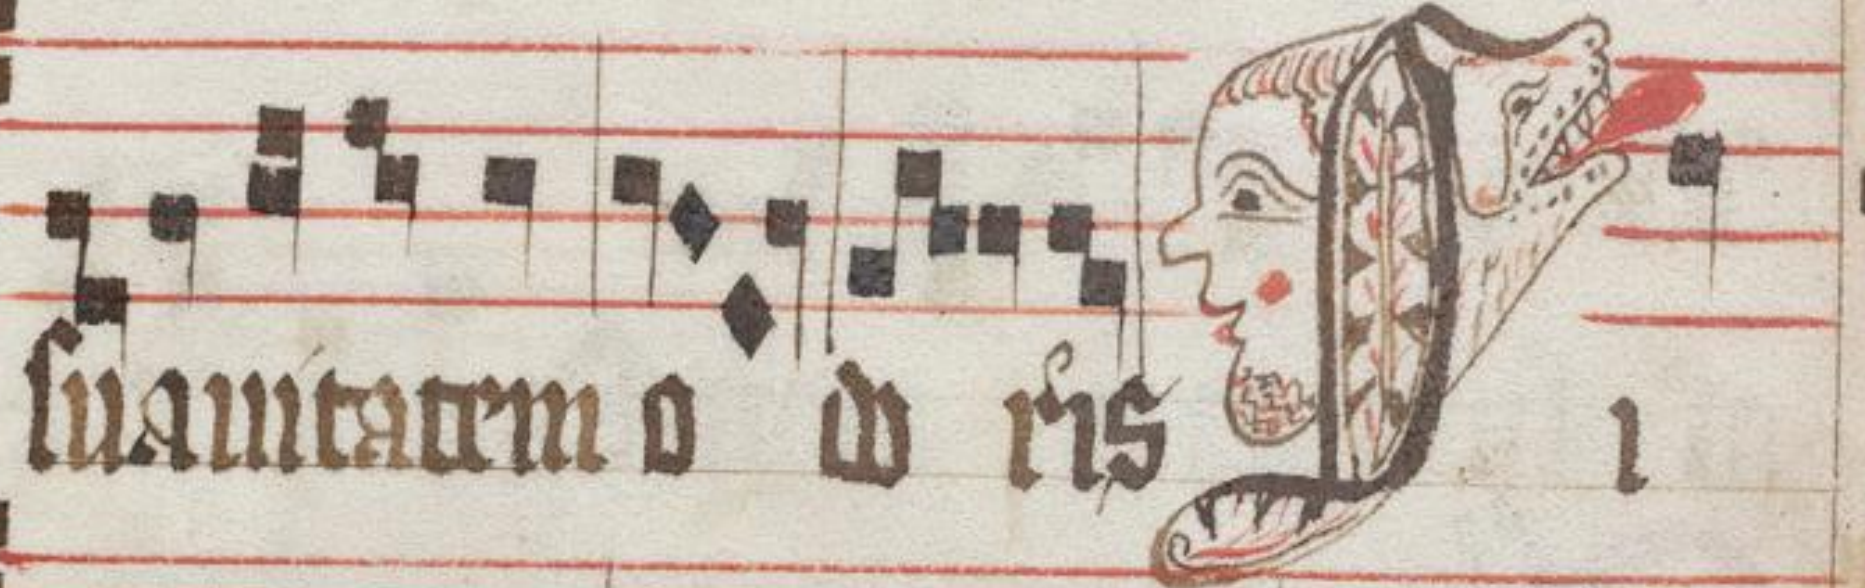 ſuauitatem o do ris i